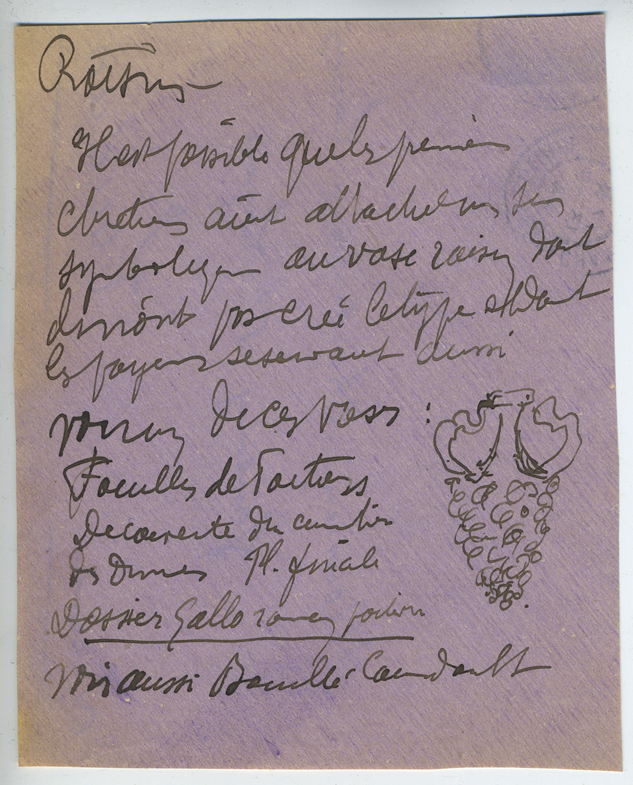 Raisins
Il est possible que les premiers
chretiens aient attaché un sens
symbolique au vase raisin dont
ils n'ont pas créé le type et dont
les payens se servaient aussi
voir un de ces vases :
Fouilles de Poitiers
Decouverte du cimetière
des Dunes Pl. finale
Dossier Gallo romain poitevin
voir aussi Bouillé Courdault